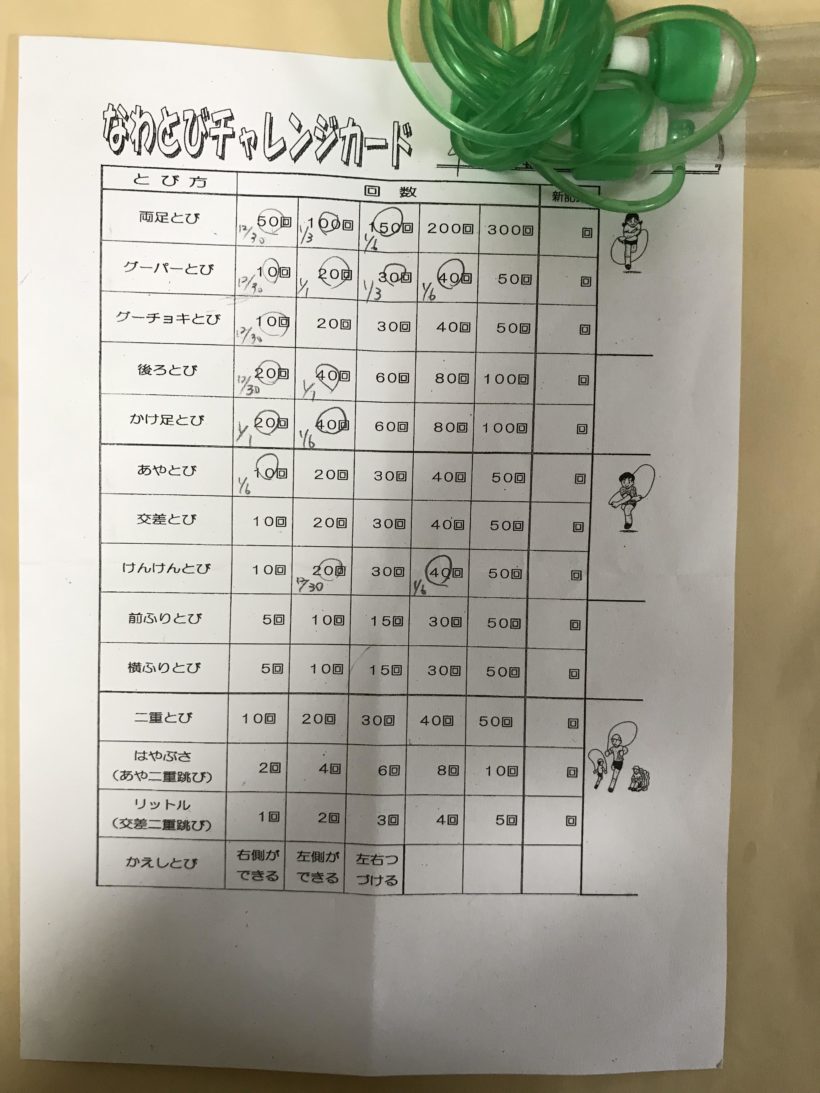 なわとびチャレンジカード
とび方 回数
両足とび 50回 100回 150回 200回 300回 回
12/30 1/3 1/6
グーパーとび 10回 20回 30回 40回 50回 回
12/30 1/1 1/3 1/6
グーチョキとび 10回 20回 30回 40回 50回 回
12/30
後ろとび 20回 40回 60回 80回 100回 回
12/30 1/1
かけ足とび 20回 40回 60回 80回 100回 回
1/1 1/6
あやとび 10回 20回 30回 40回 50回 回
1/6
交差とび 10回 20回 30回 40回 50回 回
けんけんとび 10回 20回 30回 40回 50回 回
12/30 1/6
前ふりとび 5回 10回 15回 30回 50回 回
横ふりとび 5回 10回 15回 30回 50回 回
二重とび 10回 20回 30回 40回 50回 回
はやぶさ
(あや二重跳び) 2回 4回 6回 8回 10回 回
リットル
(交差二重跳び) 1回 2回 3回 4回 5回 回
かえしとび 右側が 左側が 左右つ
できる できる づける